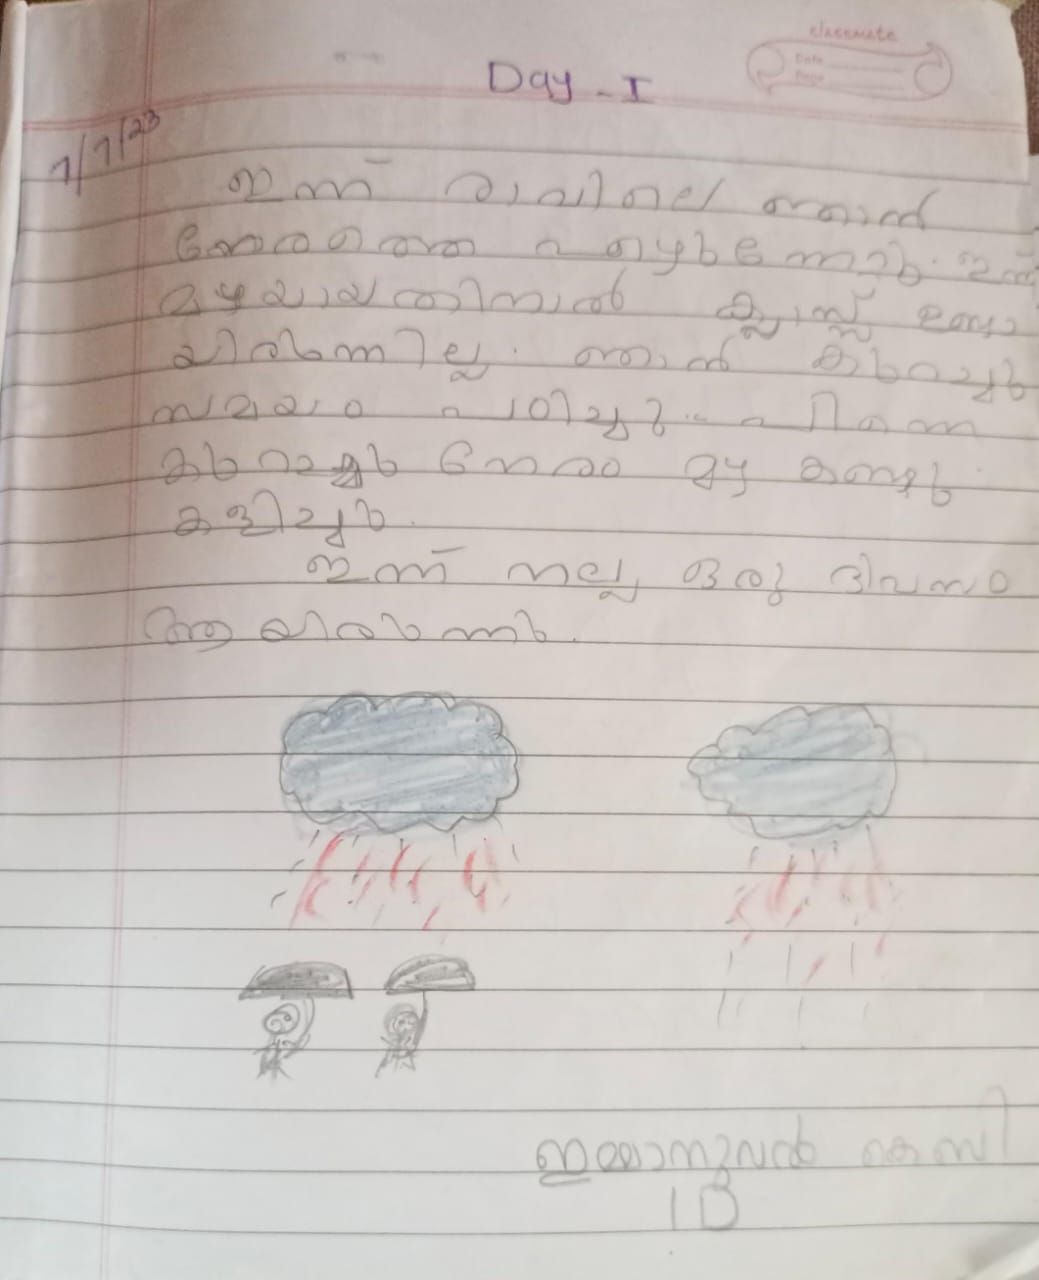 Day - I
classmate
Date
Page
7/7/23
ഇന്ന് രാവിലെ ഞാൻ
നേരത്തെ എഴുന്നേറ്റു. ഇന്ന്
മഴയായതിനാൽ ക്ലാസ്സ് ഉണ്ടാ
യിരുന്നില്ല. ഞാൻ കുറച്ചു
സമയം പഠിച്ചു. പിന്നെ
കുറച്ചു നേരം മഴ കണ്ടു
കളിച്ചു.
ഇന്ന് നല്ല ഒരു ദിവസം
ആയിരുന്നു.
ഇമ്മാനുവൽ കെ സി
1 B